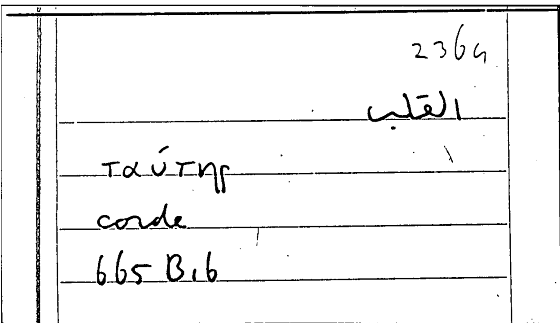 236a
القلب
ταύτης
corde
665 B.6